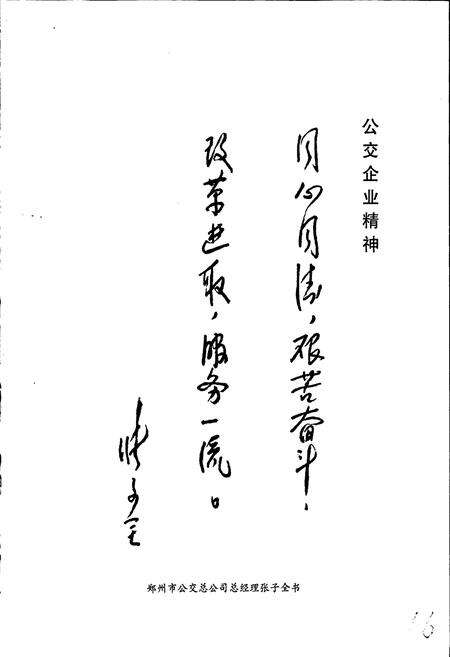 公交企业精神
同心同德，艰苦奋斗，
改革进取，服务一流。
张子全
郑州市公交总公司总经理张子全书
16